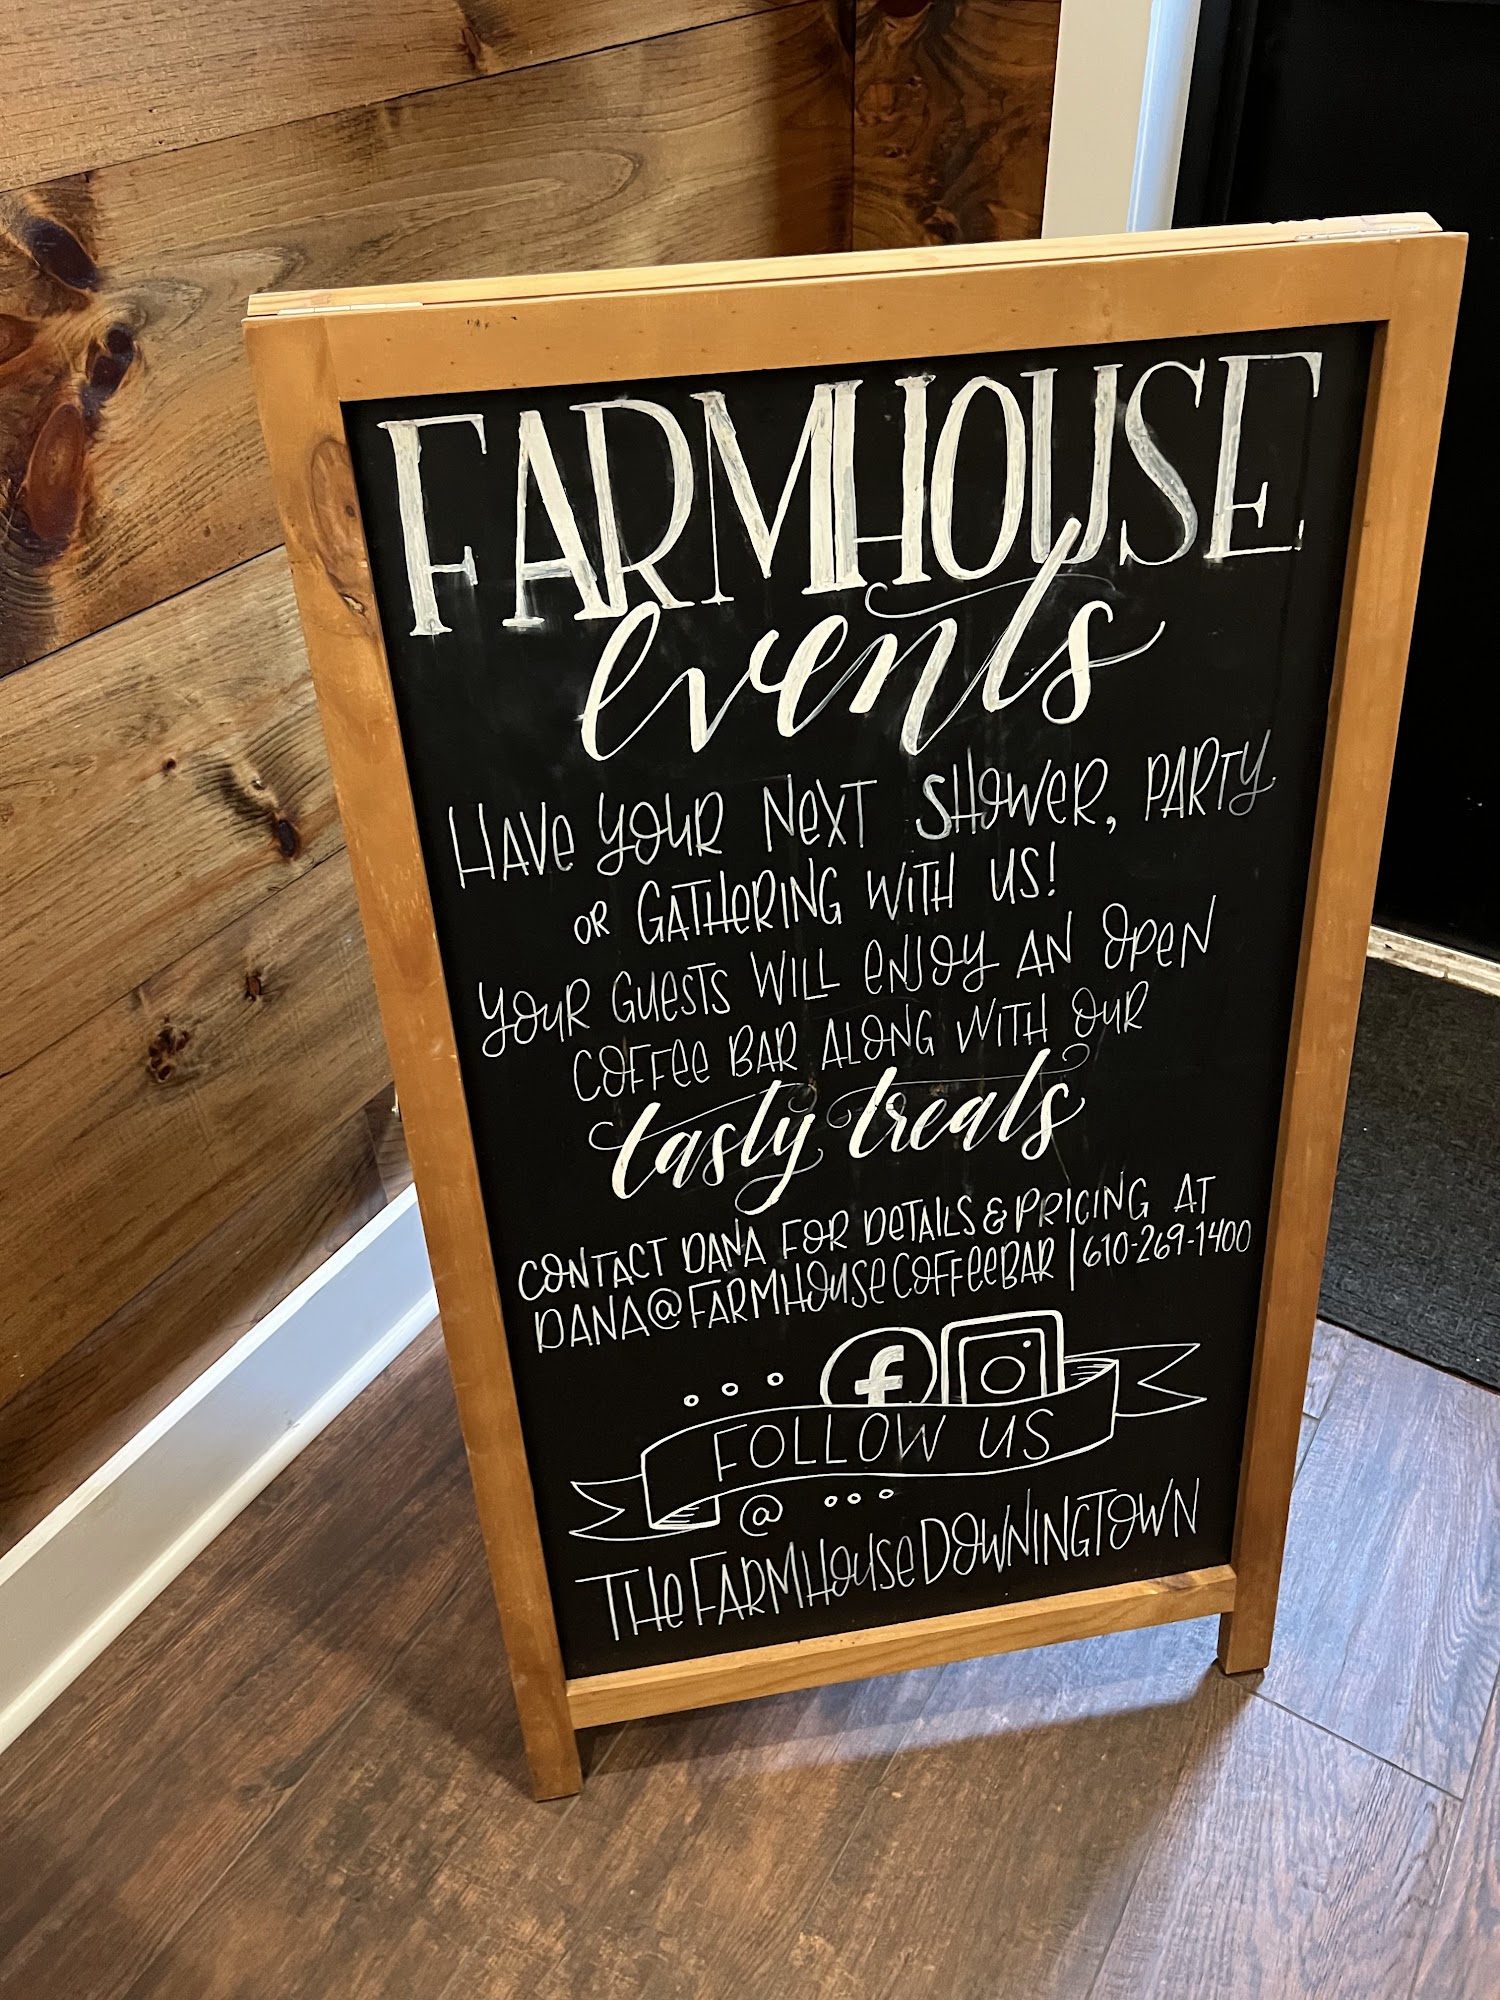 FARMHOUSE
events
HAVE YOUR NEXT SHOWER, PARTY
OR GATHERING WITH US!
YOUR GUESTS WILL ENJOY AN OPEN
COFFEE BAR ALONG WITH OUR
tasty treats
CONTACT DANA FOR DETAILS & PRICING AT
DANA@FARMHOUSECOFFEEBAR | 610-269-1400
f
FOLLOW US
@
THEFARMHOUSEDOWNINGTOWN